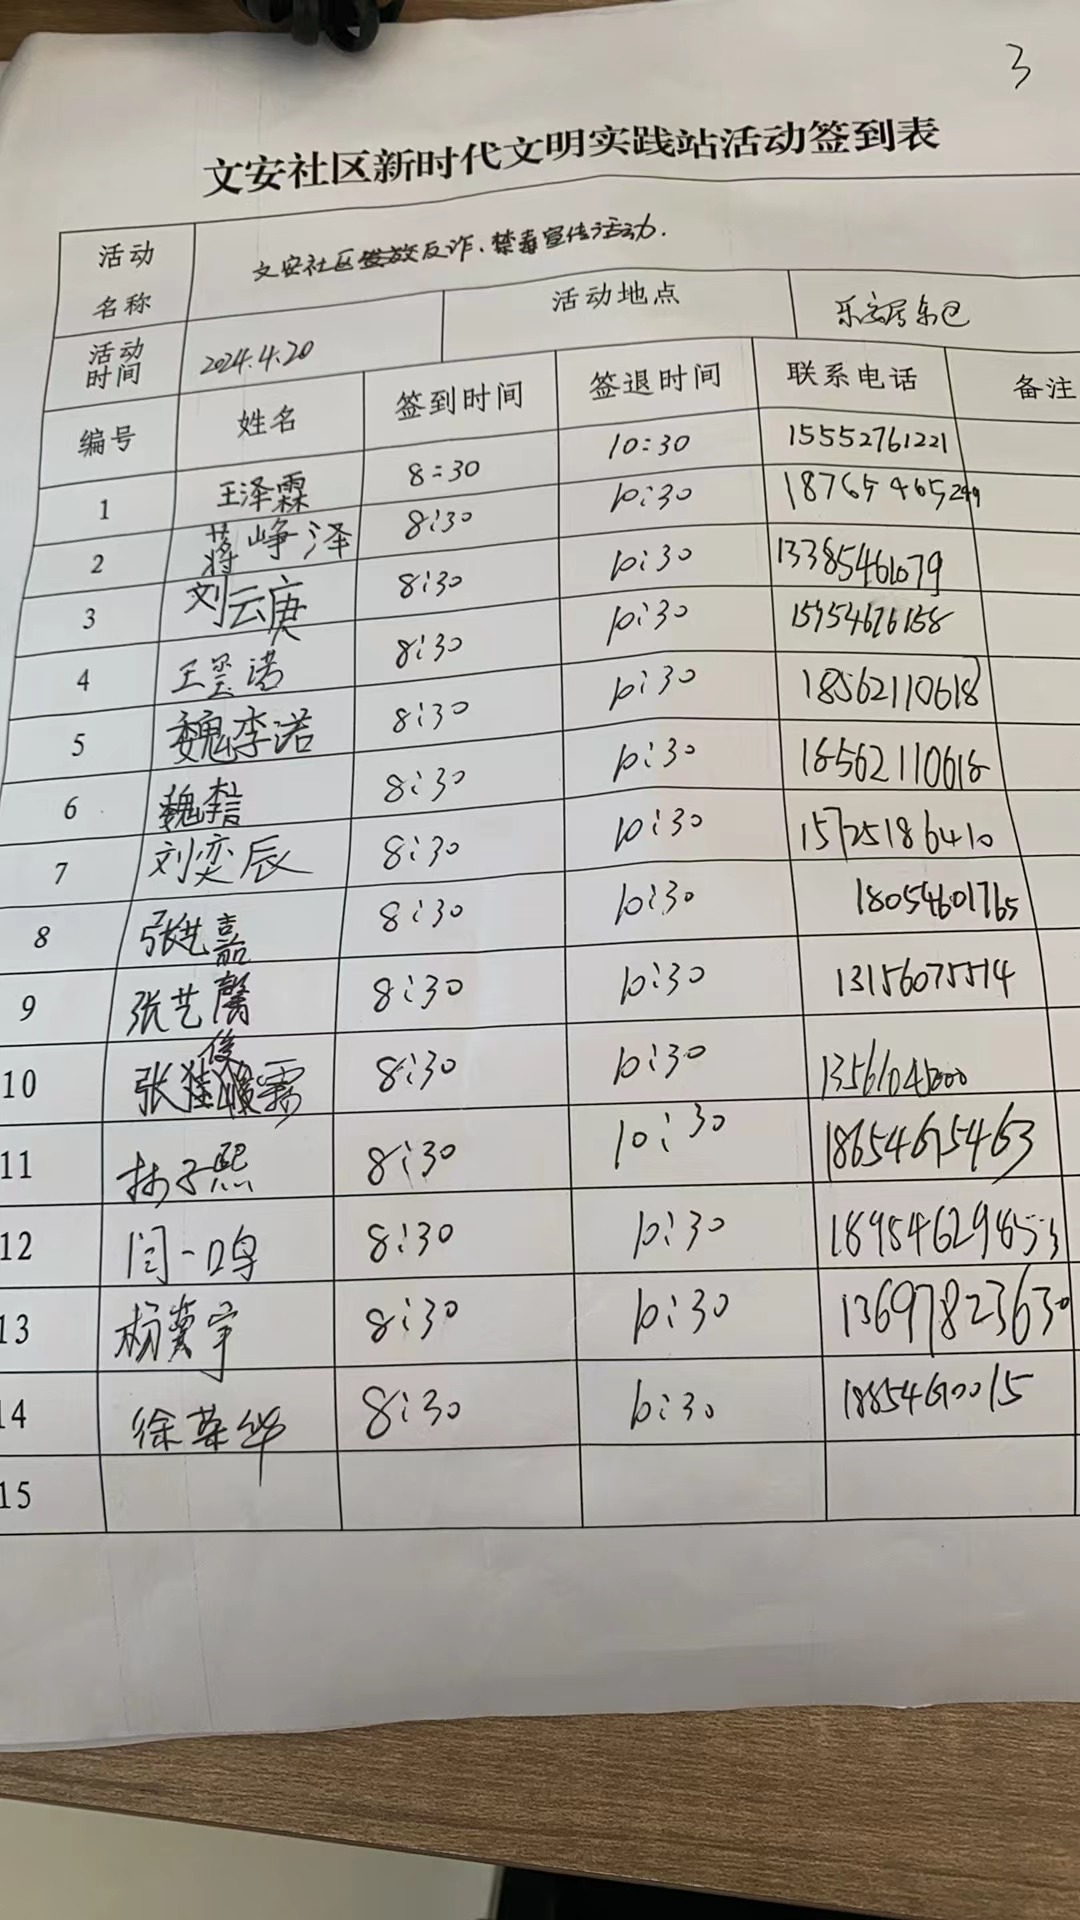 3
文安社区新时代文明实践站活动签到表
活动名称 文安社区反诈、禁毒宣传活动.
活动时间 2024.4.20 活动地点
编号 姓名 签到时间 签退时间 联系电话 备注
1 王泽霖 8:30 10:30 15552761221
2 蒋峥泽 8:30 10:30 18765465249
3 刘云庚 8:30 10:30 13385461079
4 王墨诺 8:30 10:30
5 魏李诺 8:30 10:30 18562110618
6 魏李喆 8:30 10:30 18562110618
7 刘奕辰 8:30 10:30 15725186410
8 张艺嘉 8:30 10:30 18054601765
9 张艺馨 8:30 10:30 13156075514
10 张俊霖 8:30 10:30
11 林子熙 8:30 10:30 18654675463
12 闫一鸣 8:30 10:30
13 杨蕓宇 8:30 10:30 13697823630
14 徐荣华 8:30 10:30
15